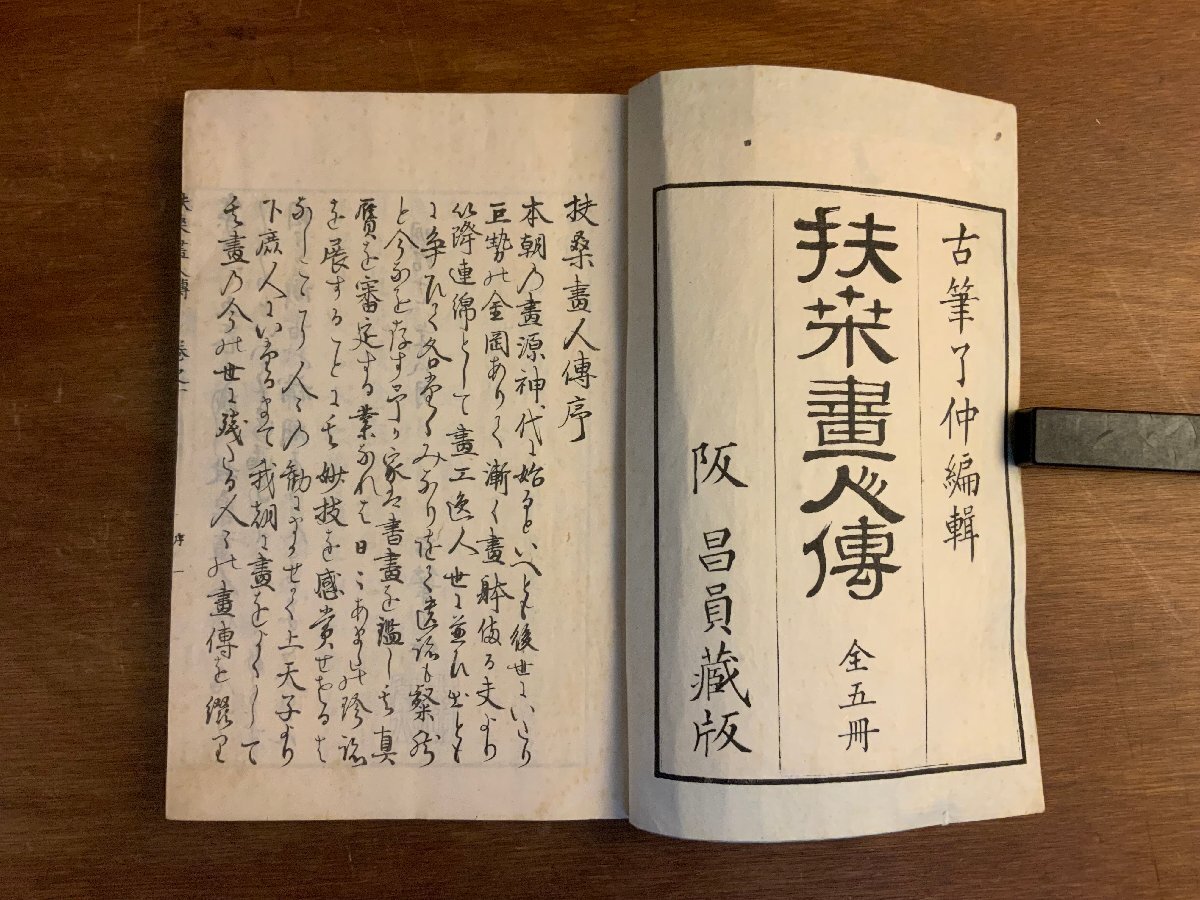 古筆了仲編輯
扶桒畫人傳 全五冊
阪昌員藏版
扶桑畫人傳序
本朝乃畫源神代に始るといへとも後世にいたり
巨勢の金岡ありて漸く畫躰備る夫より
以降連綿として畫工逸人世に並ひ出とも
に争ひて各堂
と今の家書畫を鑑し其真
贋を審定する業なれは日こ
を展することに其妙技を感賞せさるは
なし人々の勧にまかせて上天子より
下庶人にいたるまて我朝に畫をよくして
其畫乃今の世に残たる人々の畫傳を綴
扶桑畫人傳 卷之一
序 一